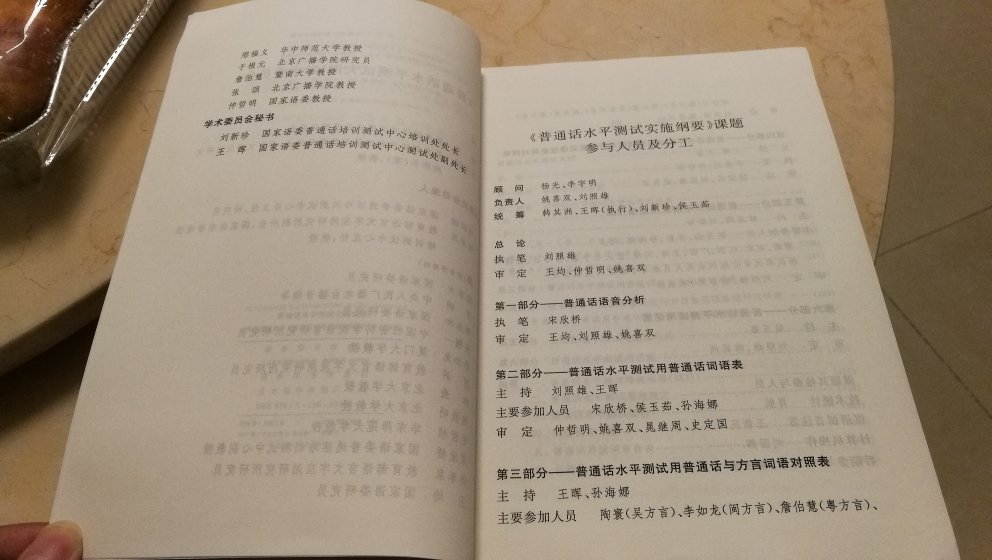 邢福义 华中师范大学教授
于根元 北京广播学院研究员
詹伯慧 暨南大学教授
张 颂 北京广播学院教授
仲哲明 国家语委教授
学术委员会秘书
刘新珍 国家语委普通话培训测试中心培训处处长
王 晖 国家语委普通话培训测试中心测试处副处长
《普通话水平测试实施纲要》课题
参与人员及分工
顾 问 杨光、李宇明
负责人 姚喜双、刘照雄
统 筹 韩其洲、王晖(执行)、刘新珍、侯玉茹
总 论
执 笔 刘照雄
审 定 王均、仲哲明、姚喜双
第一部分——普通话语音分析
执 笔 宋欣桥
审 定 王均、刘照雄、姚喜双
第二部分——普通话水平测试用普通话词语表
主 持 刘照雄、王晖
主要参加人员 宋欣桥、侯玉茹、孙海娜
审 定 仲哲明、姚喜双、晁继周、史定国
第三部分——普通话水平测试用普通话与方言词语对照表
主 持 王晖、孙海娜
主要参加人员 陶寰(吴方言)、李如龙(闽方言)、詹伯慧(粤方言)、